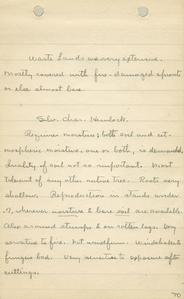 Waste Lands very extensive.
Mostly covered with fire-damaged sprouts
or else almost bare.
Silv. Char. Hemlock.
Requires moisture; both soil and at-
mospheric moisture, one or both, is demanded.
Quality of soil not so important. Most
tolerant of any other native tree. Roots very
shallow. Reproduction in stands under
.7, wherever moisture & bare soil are available.
Also around stumps & on rotten logs. Very
sensitive to fire. Not windfirm. Windshake &
fungus bad. Very sensitive to exposure after
cuttings.